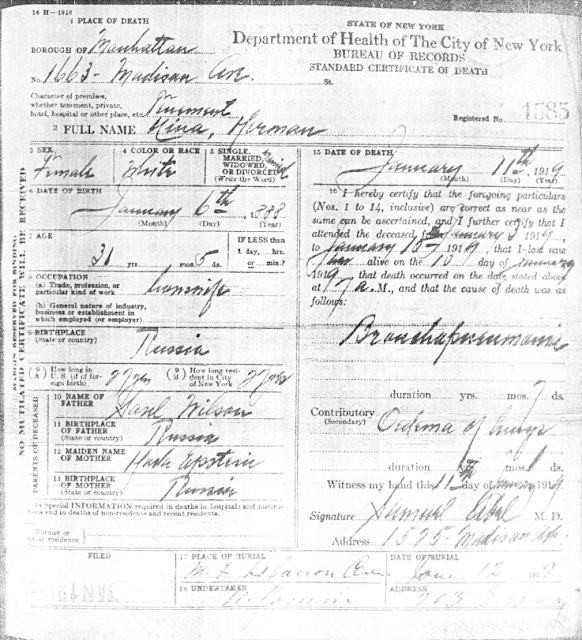 14 H-1916
1 PLACE OF DEATH
STATE OF NEW YORK
Department of Health of The City of New York
BUREAU OF RECORDS
STANDARD CERTIFICATE OF DEATH
BOROUGH OF Manhattan
No. 1663 - Madison Ave. St.
Character of premises,
whether tenement, private,
hotel, hospital or other place, etc. Tenement
Registered No. 1585
2 FULL NAME Nina, Herman
3 SEX
Female
4 COLOR OR RACE
White
5 SINGLE,
MARRIED,
WIDOWED,
OR DIVORCED
(Write the Word)
6 DATE OF BIRTH
January 6th, 1888
(Month) (Day) (Year)
7 AGE
31 yrs. mos. 5 ds.
IF LESS than
1 day, hrs.
or min.?
8 OCCUPATION
(a) Trade, profession, or
particular kind of work
housewife
(b) General nature of industry,
business or establishment in
which employed (or employer)
9 BIRTHPLACE
(State or country)
Russia
(9 A) How long in
U. S. (if of for-
eign birth) 27 yrs
(9 B) How long res-
ident in City
of New York 27 yrs
PARENTS OF DECEASED
10 NAME OF
FATHER
Wilson
11 BIRTHPLACE
OF FATHER
(State or country)
Russia
12 MAIDEN NAME
OF MOTHER
Epstein
13 BIRTHPLACE
OF MOTHER
(State or country)
Russia
14 Special INFORMATION required in deaths in hospitals and institu-
tions and in deaths of non-residents and recent residents.
Former or
usual residence
MARGIN RESERVED FOR BINDING
NO MUTILATED CERTIFICATE WILL BE RECEIVED
15 DATE OF DEATH
January 11th, 1919
(Month) (Day) (Year)
16 I hereby certify that the foregoing particulars
(Nos. 1 to 14, inclusive) are correct as near as the
same can be ascertained, and I further certify that I
attended the deceased from January 3 1919,
to January 10 1919, that I last saw
her alive on the 10 day of January
1919, that death occurred on the date stated above
at 7 a. M., and that the cause of death was as
follows:
Bronchopneumonia
duration yrs. mos. 7 ds.
Contributory
(Secondary)
Oedema of lungs
duration yrs. mos. 1 ds.
Witness my hand this 11th day of January 1919
Signature Samuel M. D.
Address 1525 Madison Ave.
FILED
17 PLACE OF BURIAL
Mt Lebanon Cem.
DATE OF BURIAL
Jan. 12 1919
18 UNDERTAKER
ADDRESS
203